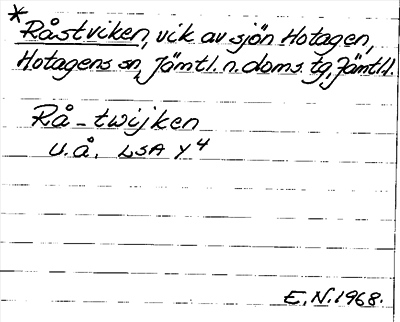 *
Råstviken, vik av sjön Hotagen,
Hotagens sn, Jämtl. n. doms. tg, Jämtl.
Rå-twijken
U.å. LSA Y4
E.N. 1968.